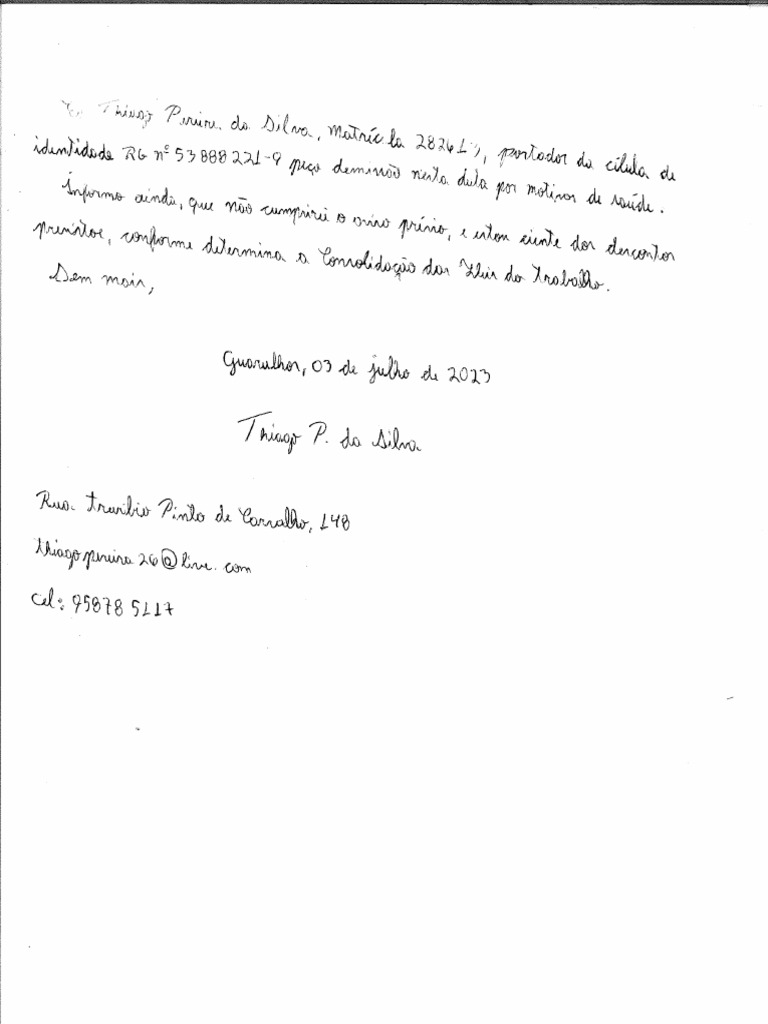 Eu Thiago Pereira da Silva, Matrícla 28261, portador da célula de
identidade RG nº 53888221-9 peço demissão nesta data por motivos de saúde.
Informo ainda, que não cumprirei o aviso prévio, e estou ciente dos descontos
previstos, conforme determina a Consolidação das Leis do Trabalho.
Sem mais,
Guarulhos, 03 de julho de 2023
Thiago P. da Silva
Rua Pinto de Carvalho, 148
thiagopereira26@live.com
cel: 95878 5117